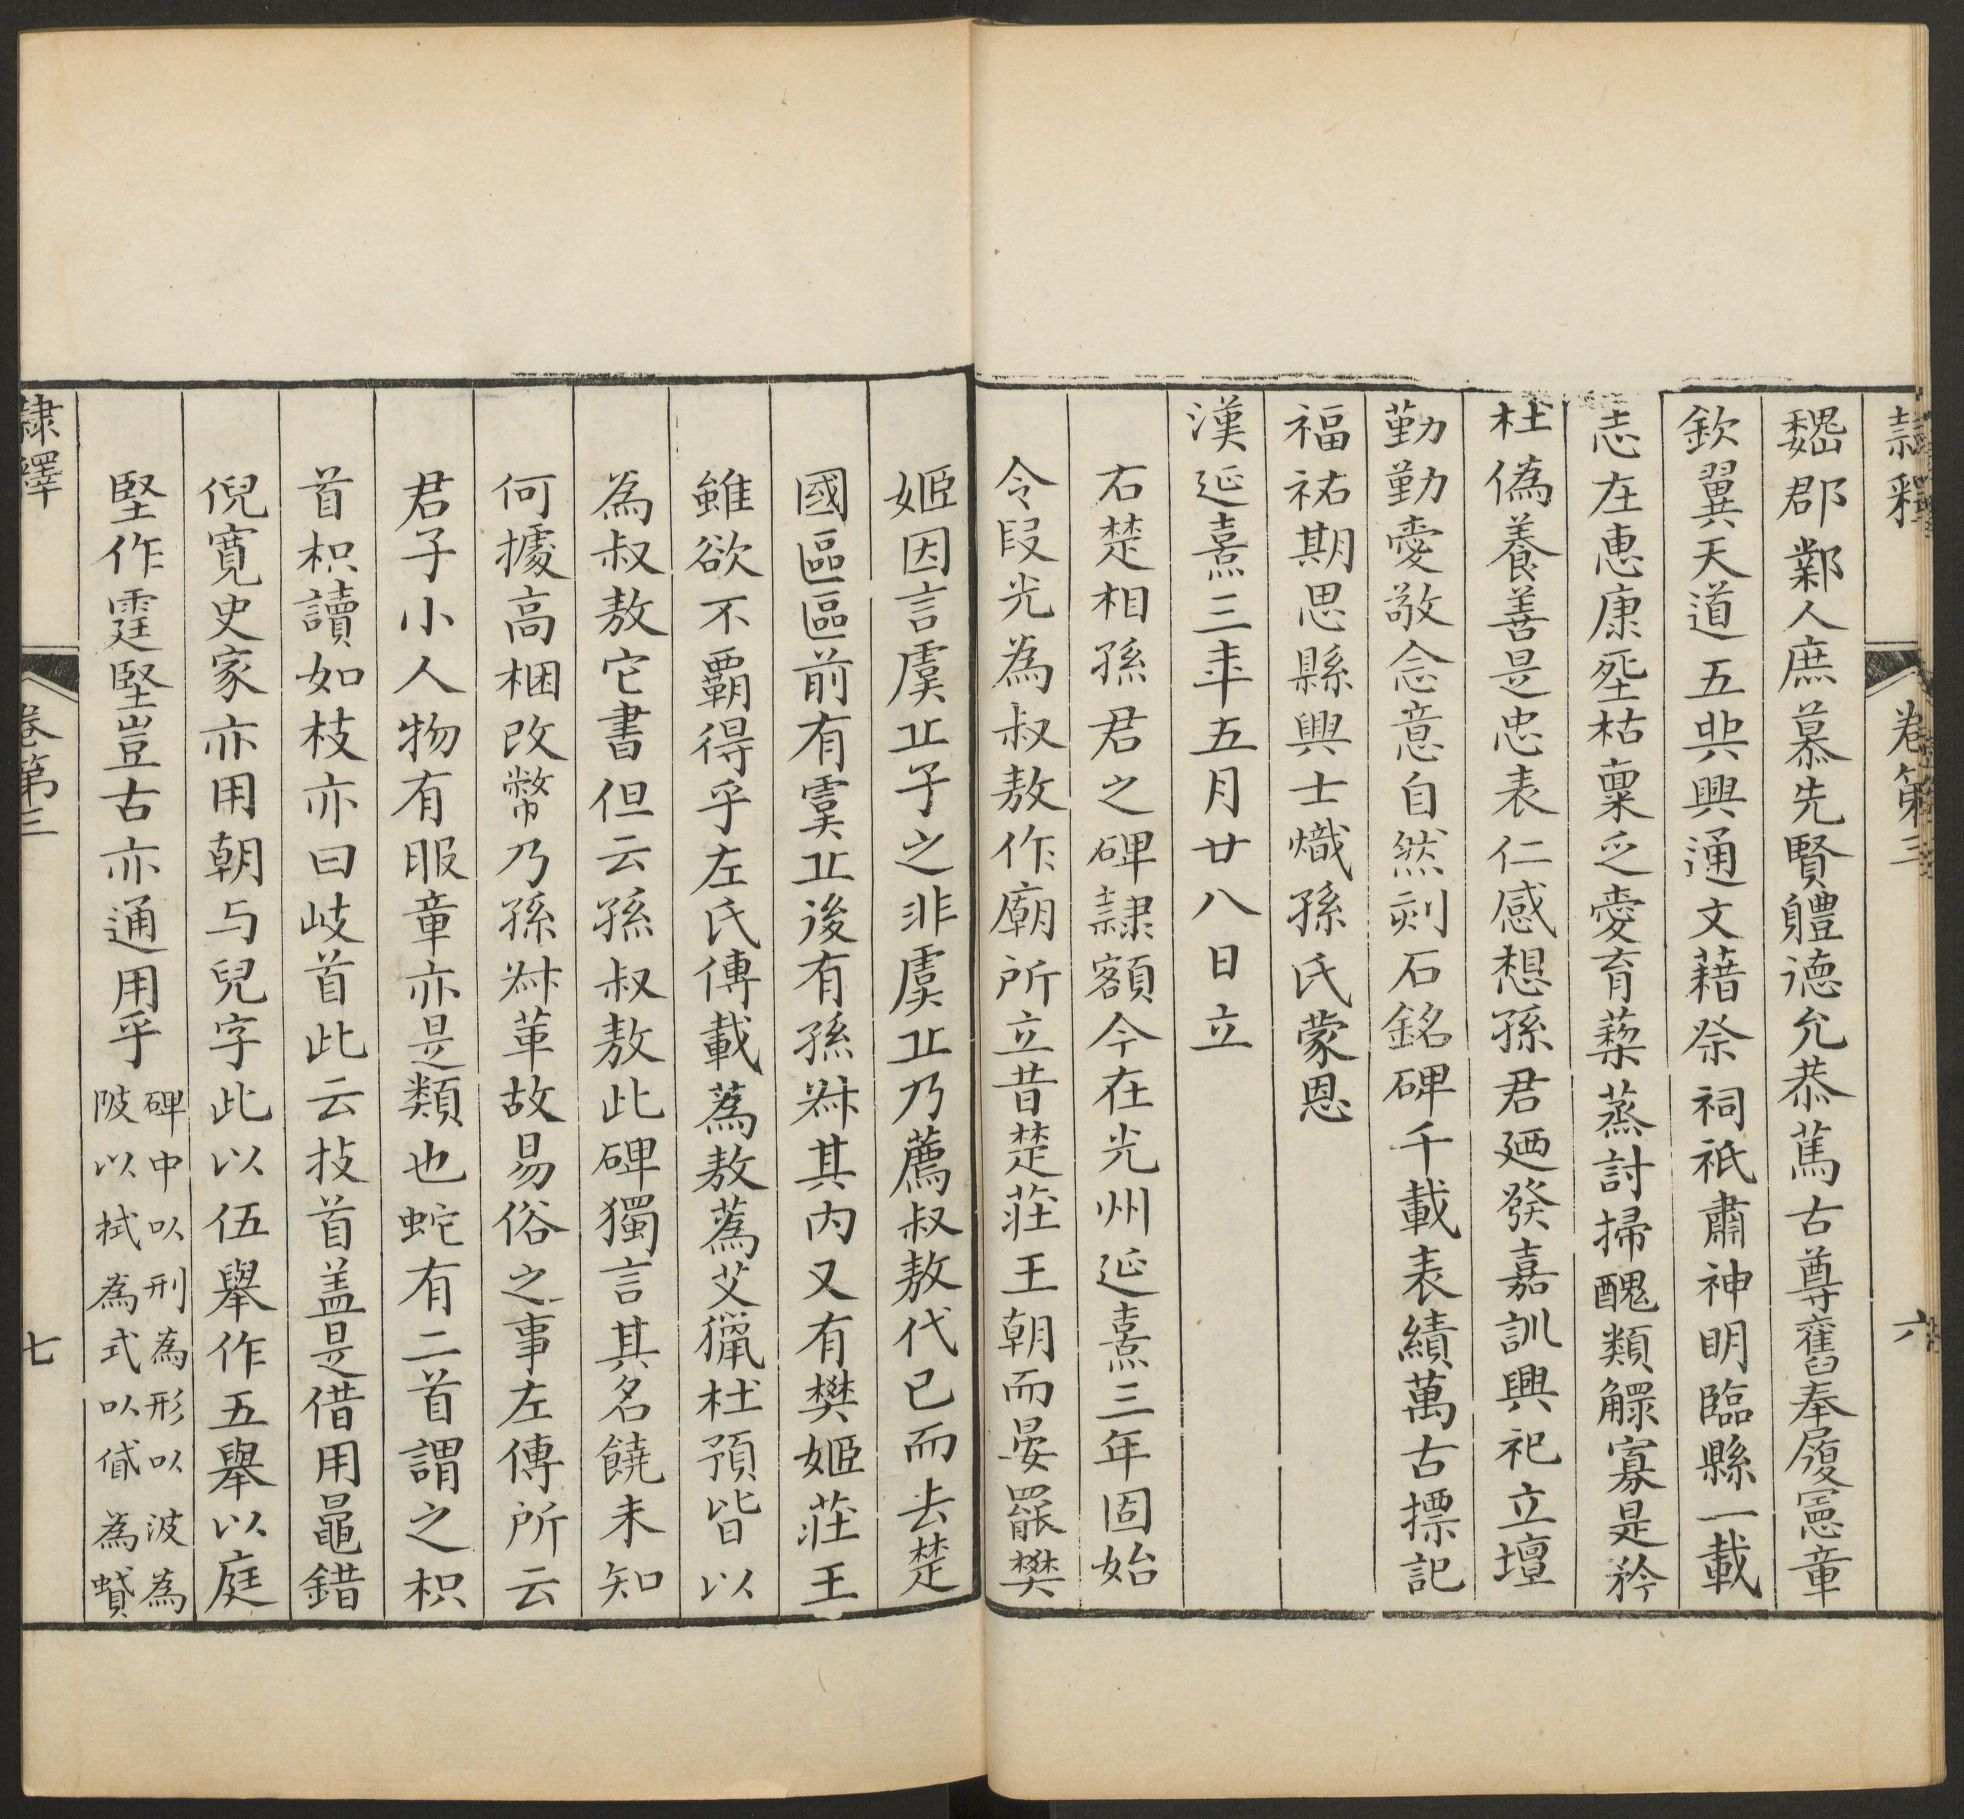 隸釋 卷第三 六
魏郡鄴人庶慕先賢體德允恭篤古尊舊奉履憲章
欽翼天道五典興通文藉祭祠祇肅神明臨縣一載
志在惠康堊枯稟乏愛育蔾蒸討掃醜類鰥寡是矜
杜偽養善是忠表仁感想孫君廼發嘉訓興祀立壇
勤勤愛敬念意自然刻石銘碑千載表績萬古摽記
福祐期思縣興士熾孫氏蒙恩
漢延熹三年五月廿八日立
右楚相孫君之碑隸額今在光州延熹三年固始
令段光為叔敖作廟所立昔楚莊王朝而晏罷樊
姬因言虞丘子之非虞丘乃薦叔敖代已而去楚
國區區前有虞丘後有孫叔其內又有樊姬莊王
雖欲不霸得乎左氏傳載蒍敖蒍艾獵杜預皆以
為叔敖它書但云孫叔敖此碑獨言其名饒未知
何據高梱改幣乃孫叔革故易俗之事左傳所云
君子小人物有服章亦是類也蛇有二首謂之枳
首枳讀如枝亦曰岐首此云技首盖是借用鼂錯
倪寬史家亦用朝与兒字此以伍舉作五舉以庭
堅作霆堅豈古亦通用乎
碑中以刑為形以波為
陂以拭為式以貣為蟘
隸釋 卷第三 七